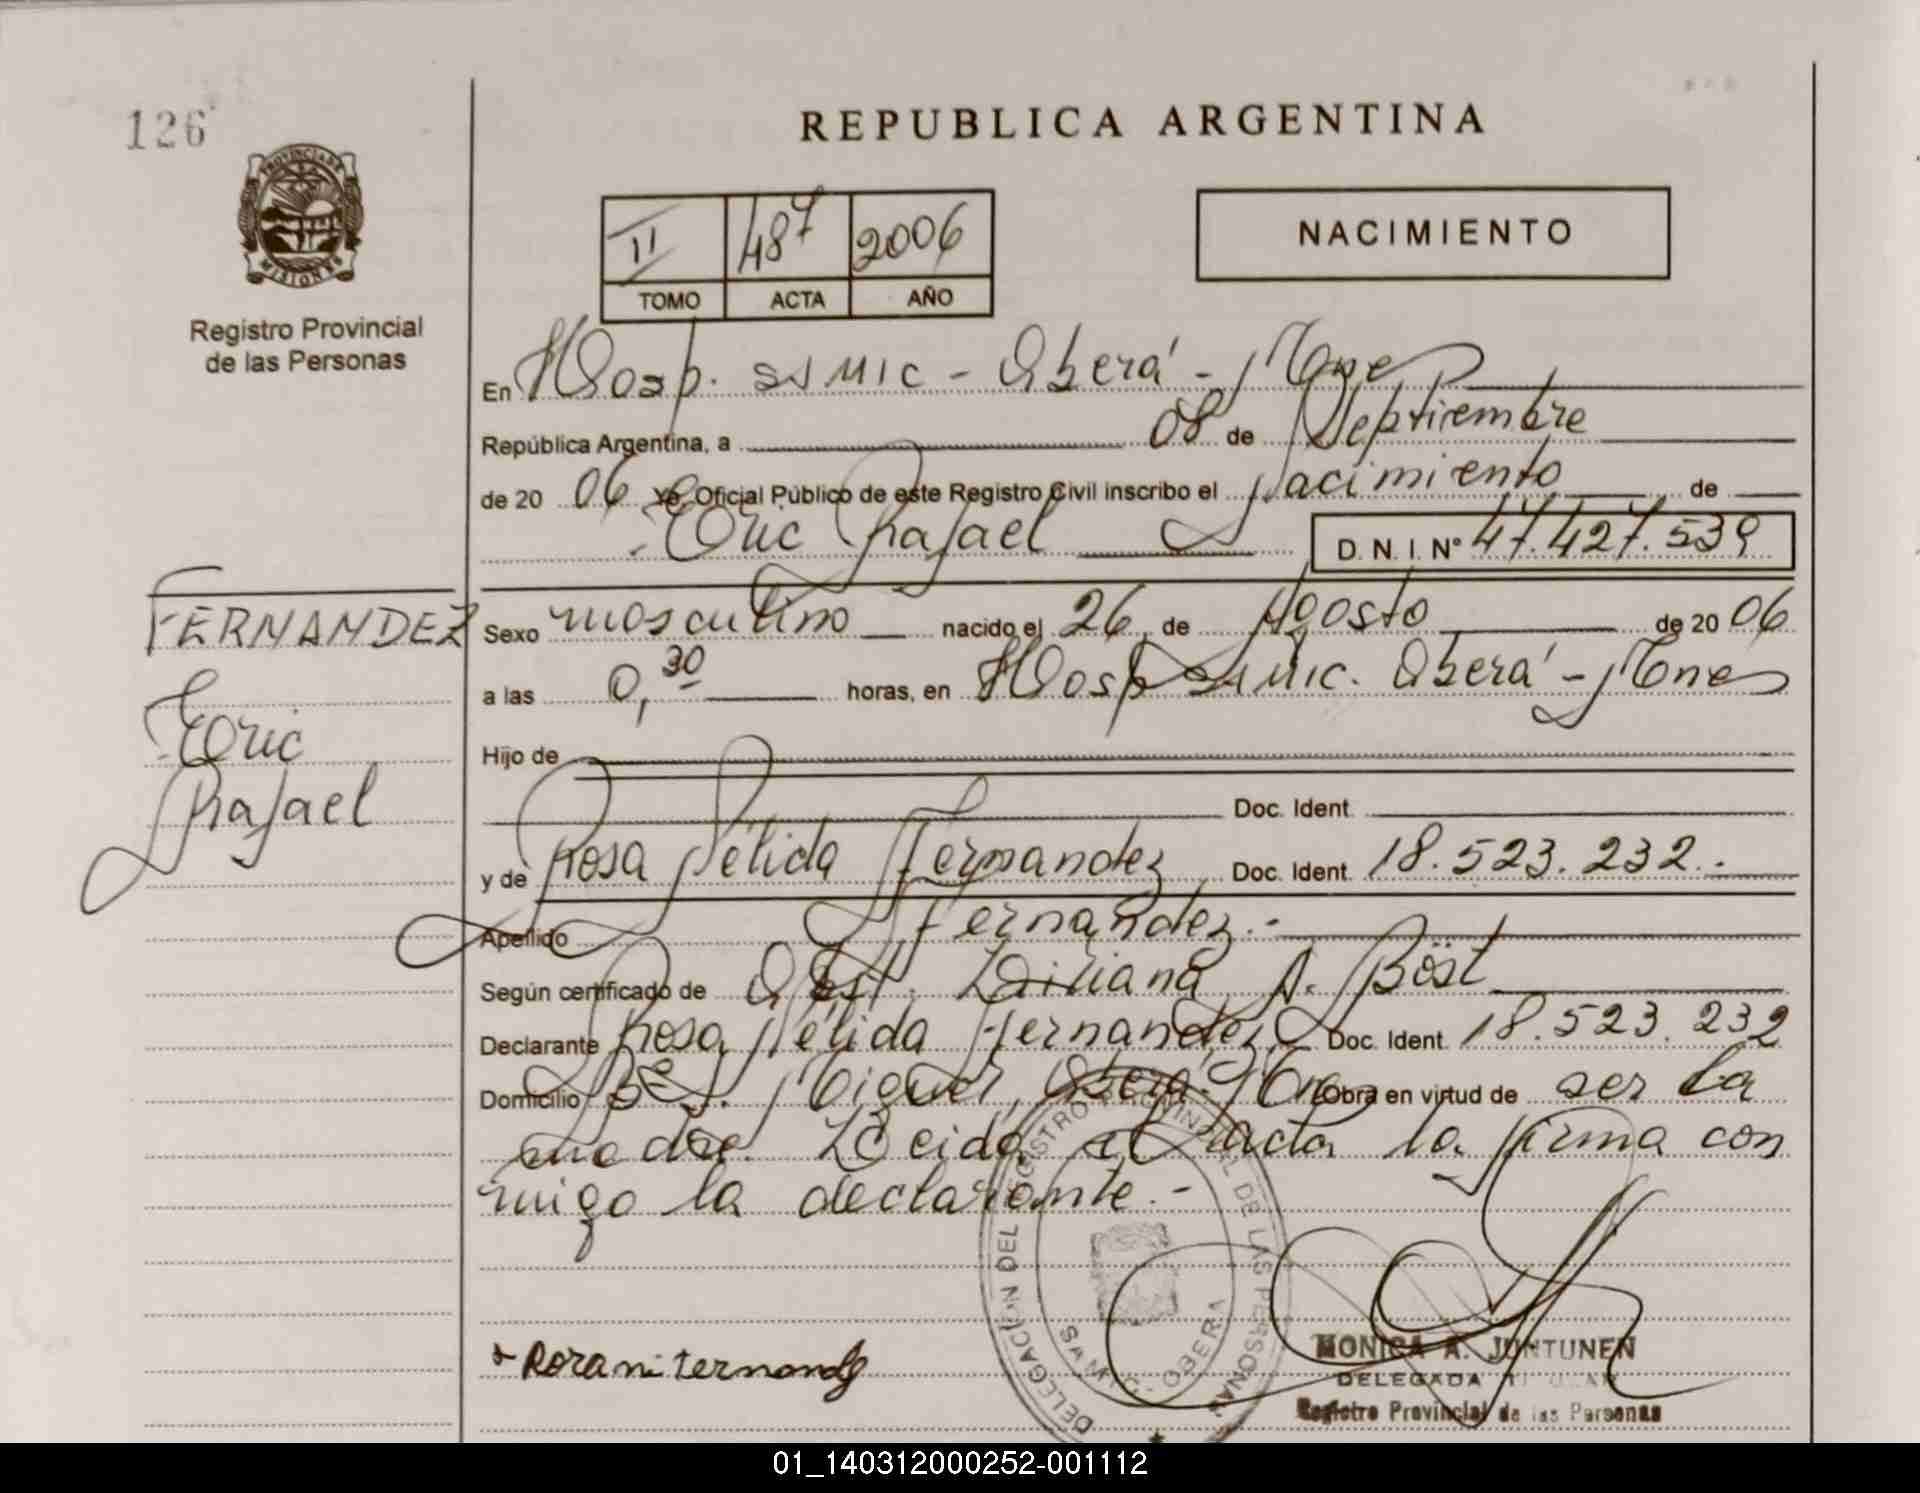 126
REPUBLICA ARGENTINA
PROVINCIA DE
MISIONES
Registro Provincial
de las Personas
II 487 2006
TOMO ACTA AÑO
NACIMIENTO
En Hosp. SAMIC - Oberá - Mnes
República Argentina, a 08 de Septiembre
de 20 06 Yo, Oficial Público de este Registro Civil inscribo el Nacimiento de
Eric Rafael D. N. I. Nº 47.427.539
FERNANDEZ
Eric
Rafael
Sexo masculino nacido el 26 de Agosto de 20 06
a las 0,30 horas, en Hosp SAMIC. Oberá - Mnes
Hijo de
Doc. Ident.
y de Rosa Nélida Fernandez Doc. Ident. 18.523.232.-
Apellido Fernandez.-
Según certificado de Obst. Liliana A. Böst
Declarante Rosa Nélida Fernandez Doc. Ident. 18.523.232
Domicilio Bº Oberá - Mnes Obra en virtud de ser la
madre. Leida el acta la firma con
migo la declarante.-
DELEGACION DEL REGISTRO PROVINCIAL DE LAS PERSONAS
SAMIC - OBERA
MONICA A. JUNTUNEN
DELEGADA TITULAR
Registro Provincial de las Personas
01_140312000252-001112